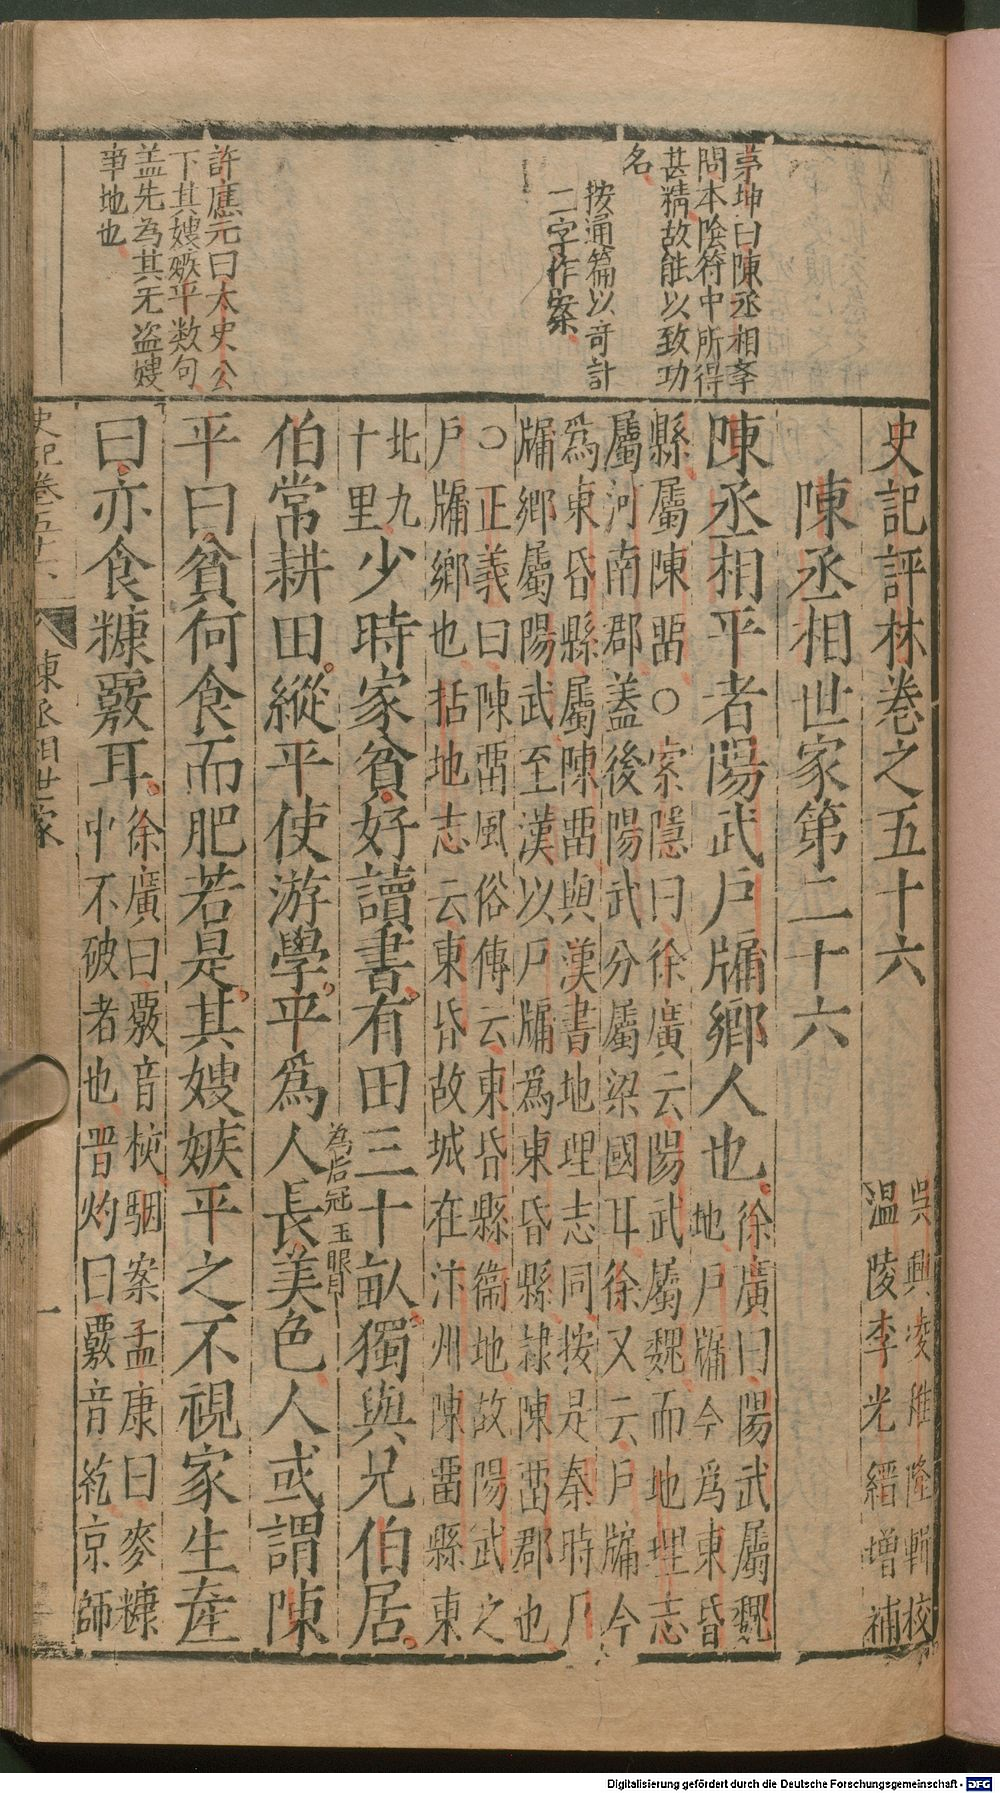 茅坤曰陳丞相孪
問本陰符中所得
甚精故能以致功
名
按通篇以竒計
二字作案
許應元曰太史公
下其嫂嫉平数句
盖先為其无盗嫂
事地也
史記評林卷之五十六
吳興凌稚隆輯校
温陵李光縉增補
陳丞相世家第二十六
陳丞相平者陽武户牖鄉人也
徐廣曰陽武屬魏
地户牖今爲東昏
縣屬陳畱○索隱曰徐廣云陽武屬魏而地理志
屬河南郡蓋後陽武分屬梁國耳徐又云户牖今
爲東昏縣屬陳畱與漢書地理志同按是秦時
牖鄉屬陽武至漢以户牖爲東昏縣隷陳畱郡也
○正義曰陳畱風俗傳云東昏縣衞地故陽武之
户牖鄉也括地志云東昏故城在汴州陳畱縣東
北九
十里
少時家貧好讀書有田三十畝獨與兄伯居
伯常耕田縱平使游學平爲人長美色人或謂陳
為后冠玉眼目
平曰貧何食而肥若是其嫂嫉平之不視家生產
曰亦食糠覈耳
徐廣曰覈音核駰案孟康曰麥糠
中不破者也晋灼曰覈音紇京師
史記卷五十六
陳丞相世家
一
Digitalisierung gefördert durch die Deutsche Forschungsgemeinschaft - DFG